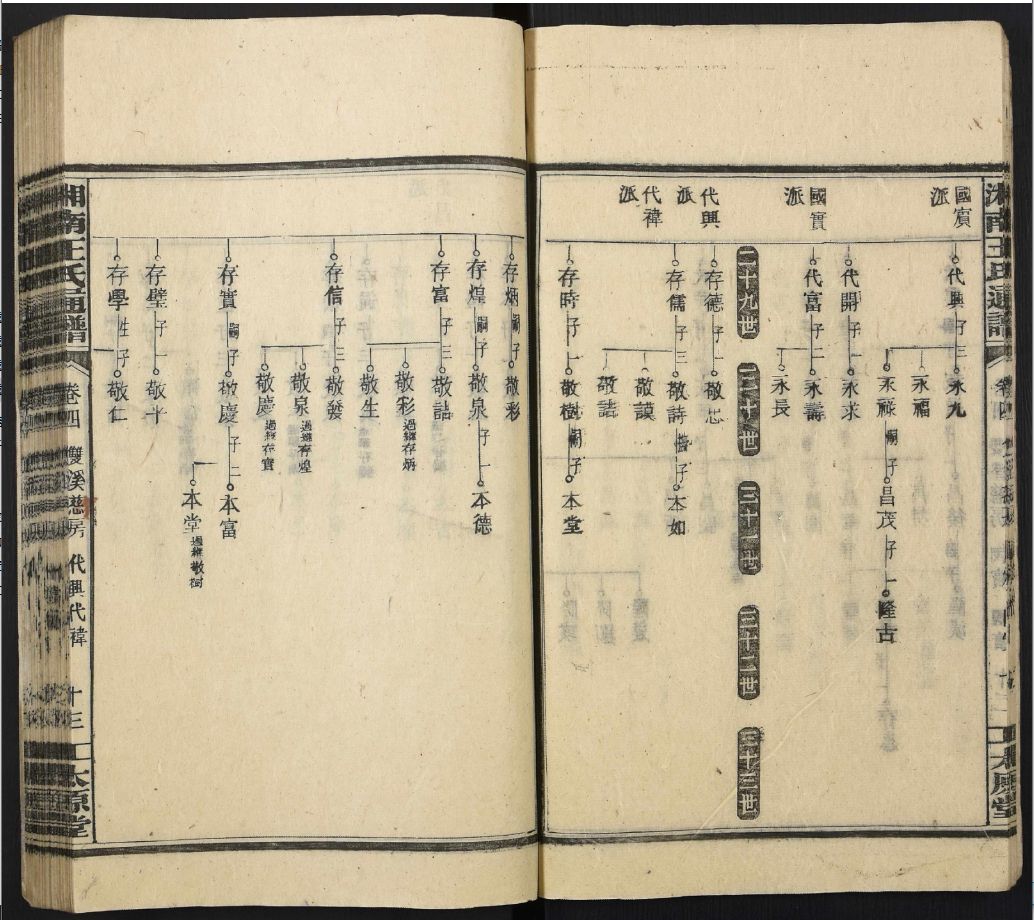 國賓派
代興 子三 永九
永福
永祿 嗣子 昌茂 子一 隆古
國實派
代開 子一 永求
代富 子二 永壽
永長
二十九世 三十世 三十一世 三十二世 三十三世
代興派
存德 子一 敬忠
存儒 子三 敬詩 子 本如
敬謨
敬諸
代禕派
存時 子一 敬樹 嗣子 本堂
存炳 嗣子 敬彩
存煌 嗣子 敬泉 子一 本德
存富 子三 敬喆
敬彩 過繼存炳
敬生
存信 子三 敬發
敬泉 過繼存煌
敬慶 過繼存實
存實 嗣子 敬慶 子二 本富
本堂 過繼敬樹
存璧 子一 敬平
存學 子 敬仁
湘南王氏通譜 卷四 雙溪慈房 代興代禕 十三 太原堂